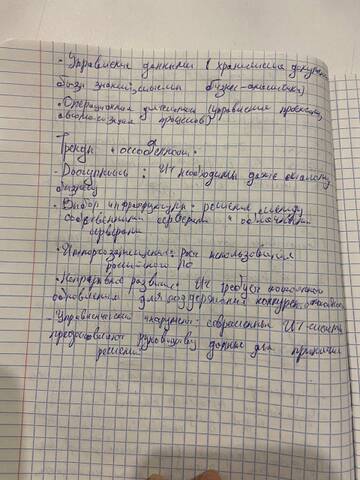 - Управление данными (хранилища докумен
базы знаний, системы бизнес-аналитики)
- Операционная деятельность (управление проектами,
автоматизация процессов)
Тренды и особенности:
- Доступность: ИТ необходимы даже малому
бизнесу
- Выбор инфраструктуры: решение между
собственными серверами и облачными
серверами
- Импортозамещение: рост использования
российского ПО
- Непрерывное развитие: ИТ требует постоянного
обновления для поддержания конкурентоспособ
- Управленческий инструмент: современные ИТ-системы
предоставляют руководству данные для принятия
решений